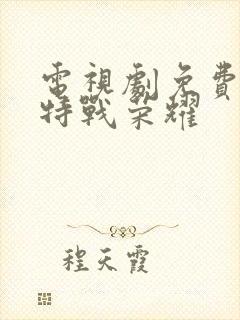 電視劇免費
特戰荣耀
程天霞